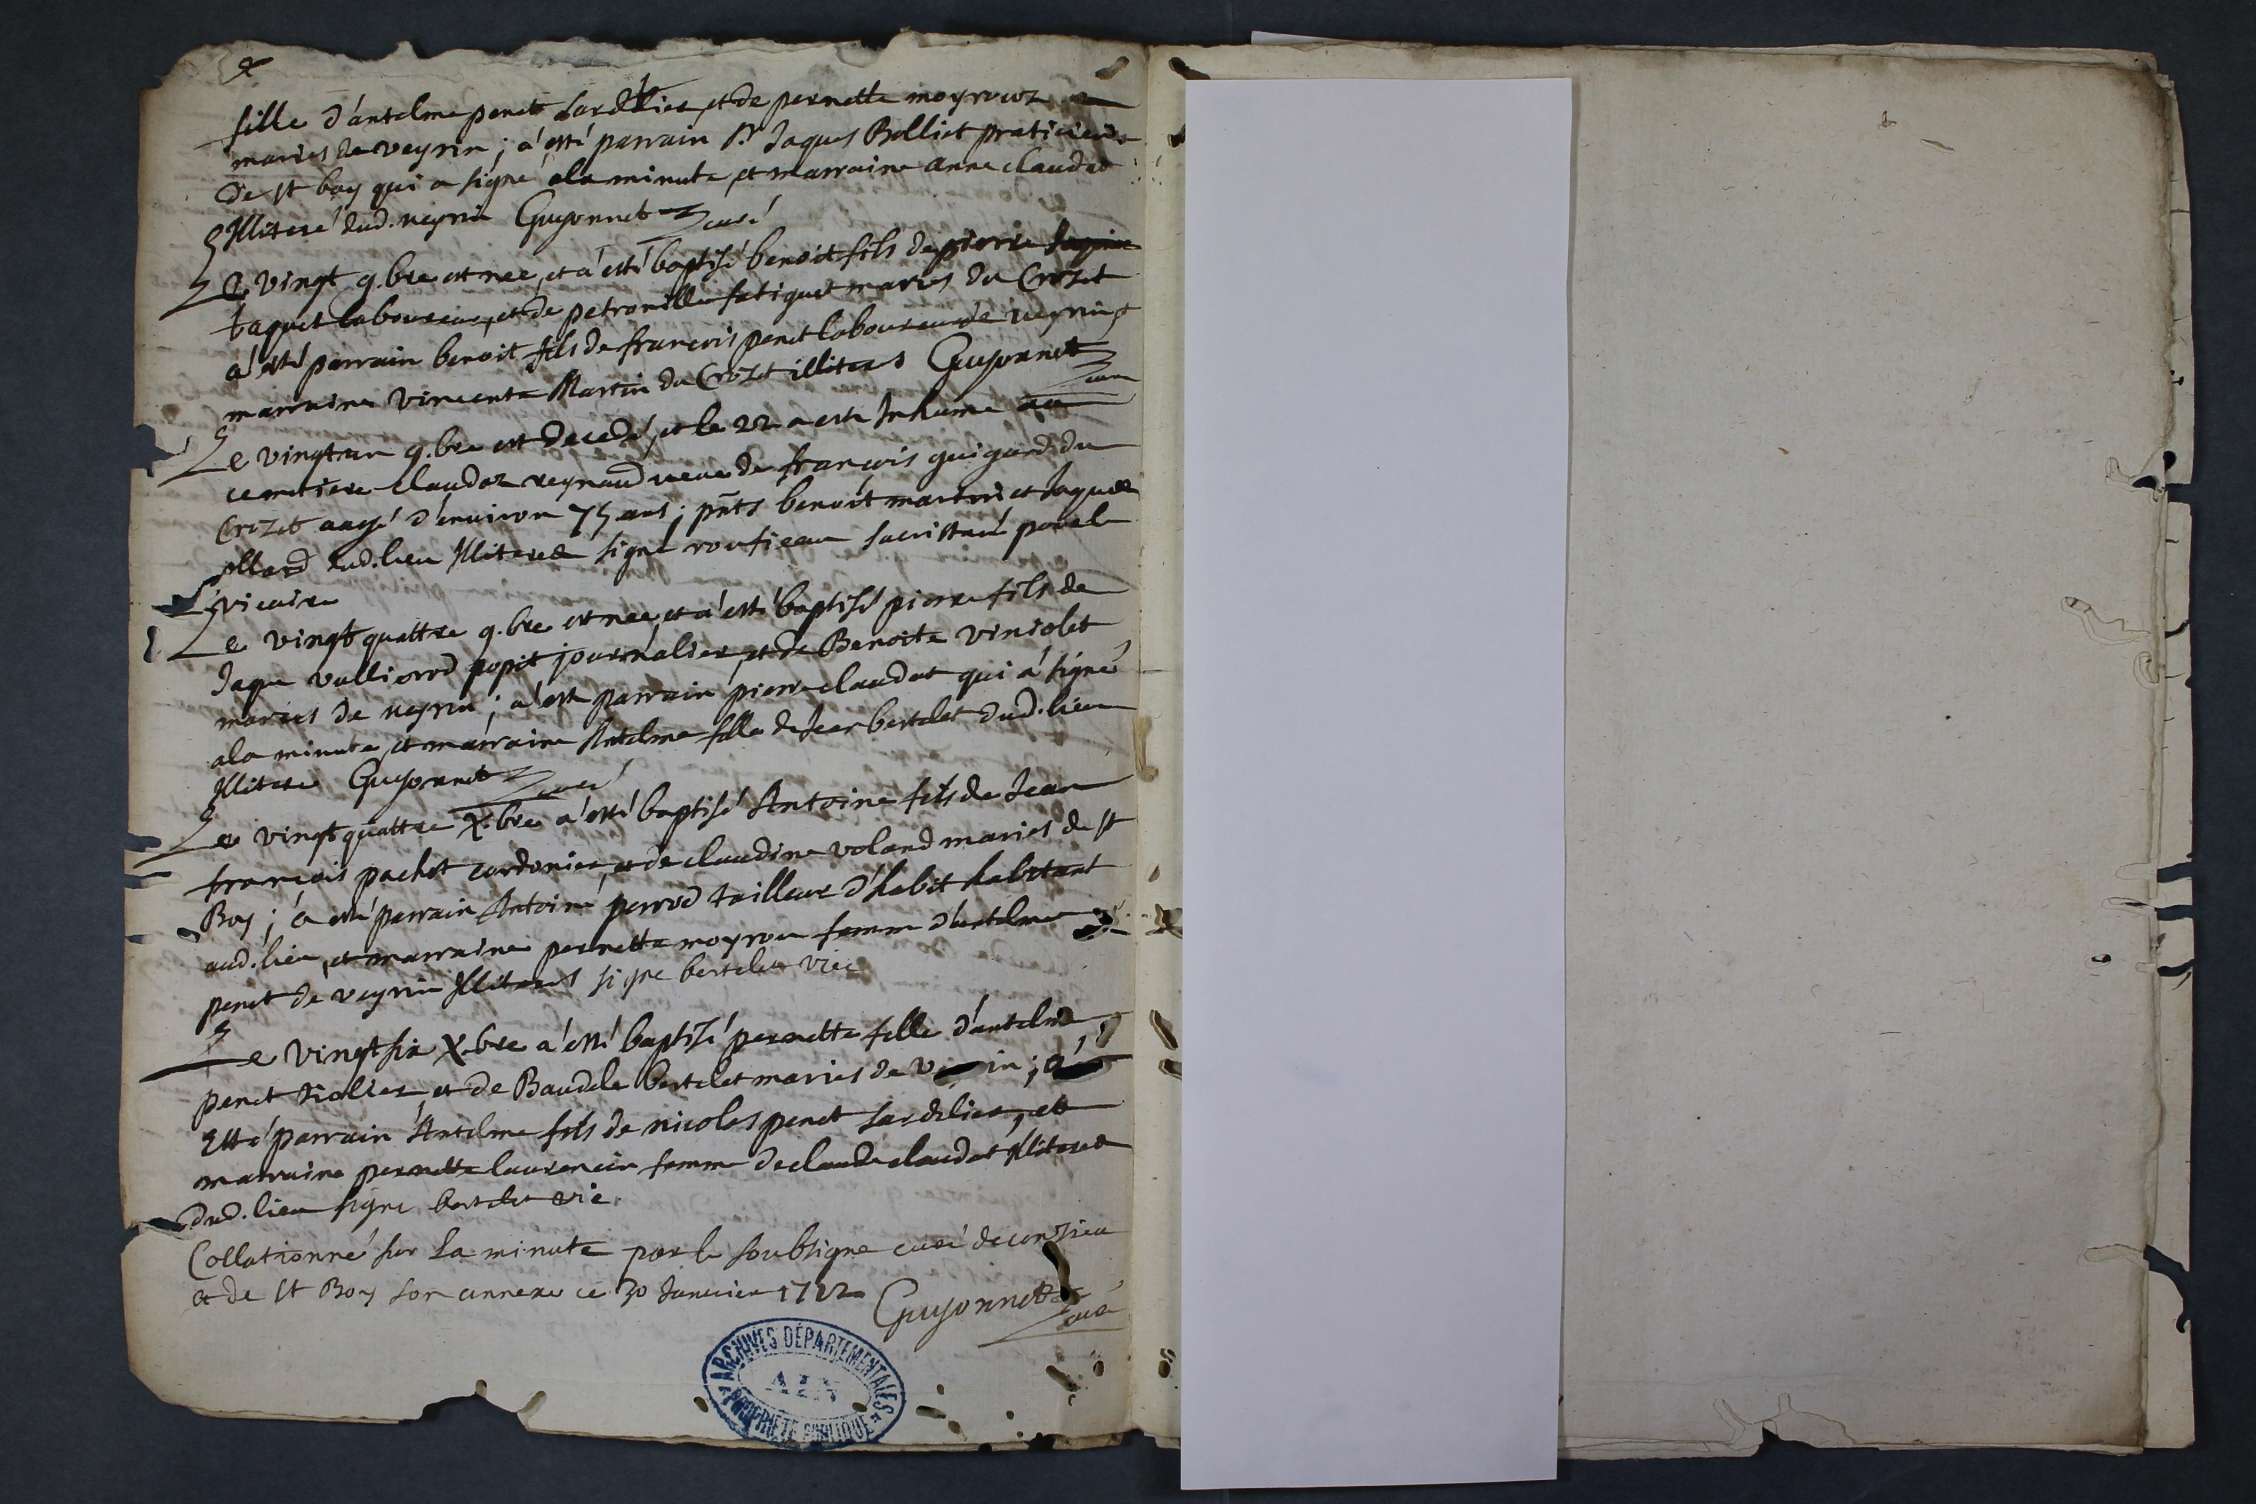 fille d'antelme penet sardelier, et de pernette moyroux
mariés de veyrin ; a esté parrain Sr Jaques Bolliet praticien
de st boy qui a signé a la minute, et marraine anne claudet
Illiteré dud. veyrin Guyonnet curé
Le vingt 9.bre est nee, et a esté baptisé benoit fils de pierre
taquet laboureur, et de petronille fatiguet mariés du Crozet
a esté parrain benoit fils de francois penet laboureur de veyrin
marraine vincente Martin du Crozet illiteres Guyonnet curé
Le vingtun 9.bre est decedé, et le 22 a esté Inhumé au
cemetiere claudaz reynaud veuve de françois guigard du
Crozet aagé d'environ 75 ans ; pnts benoit martin et Jaques
ollard dud. lieu Illiteres signé roufieau sacristain pour le
vicaire
Le vingt quattre 9.bre est nee, et a esté baptisé pierre fils de
Jaque vulliorod popit journalier, et de Benoite viniolet
mariés de veyrin ; a esté parrain pierre claudet qui a signé
a la minute, et marraine Antelme fille de Jean bertelet dud. lieu
Illiteré Guyonnet curé
Le vingt quattre X.bre a esté baptisé Antoine fils de Jean
françois pachot cordonier, et de claudine voland mariés de st
Boy ; a esté parrain Antoine perrod tailleur d'habit habitant
aud. lieu, et marraine pernette moyrou femme d'antelme
penet de veyrin Illiteres signé bertelet vic
Le vingt six X.bre a esté baptisé pernette fille d'antelme
penet tiollier, et de Baudele bertelet mariés de v in ; a
Esté parrain Antelme fils de nicolas penet sardelier, et
marraine pernette laurencin femme de claude claudet Illiteres
dud. lieu signé bertelet vic.
Collationné sur La minute par le soubsigné curé de conzieu
et de St Boy son annexe ce 30 Janvier 1712 Guyonnet curé
ARCHIVES DÉPARTEMENTALES
AIN
PROPRIÉTÉ PUBLIQUE